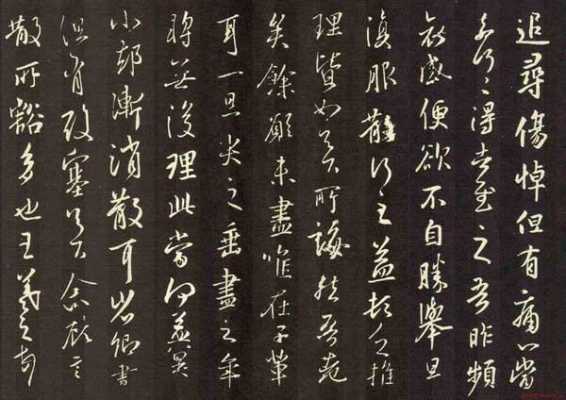 追尋傷悼但有痛心當
奈何〻得告慰之吾昨頻
哀感便欲不自勝舉旦
復服散行之益頓乏推
理皆如足下所誨然吾老
矣餘願未盡唯在子輩
耳一旦哭之垂盡之年
將無復理此當何益冀
小卻漸消散耳省卿書
但有酸塞足下念故言
散所豁多也王羲之頓首